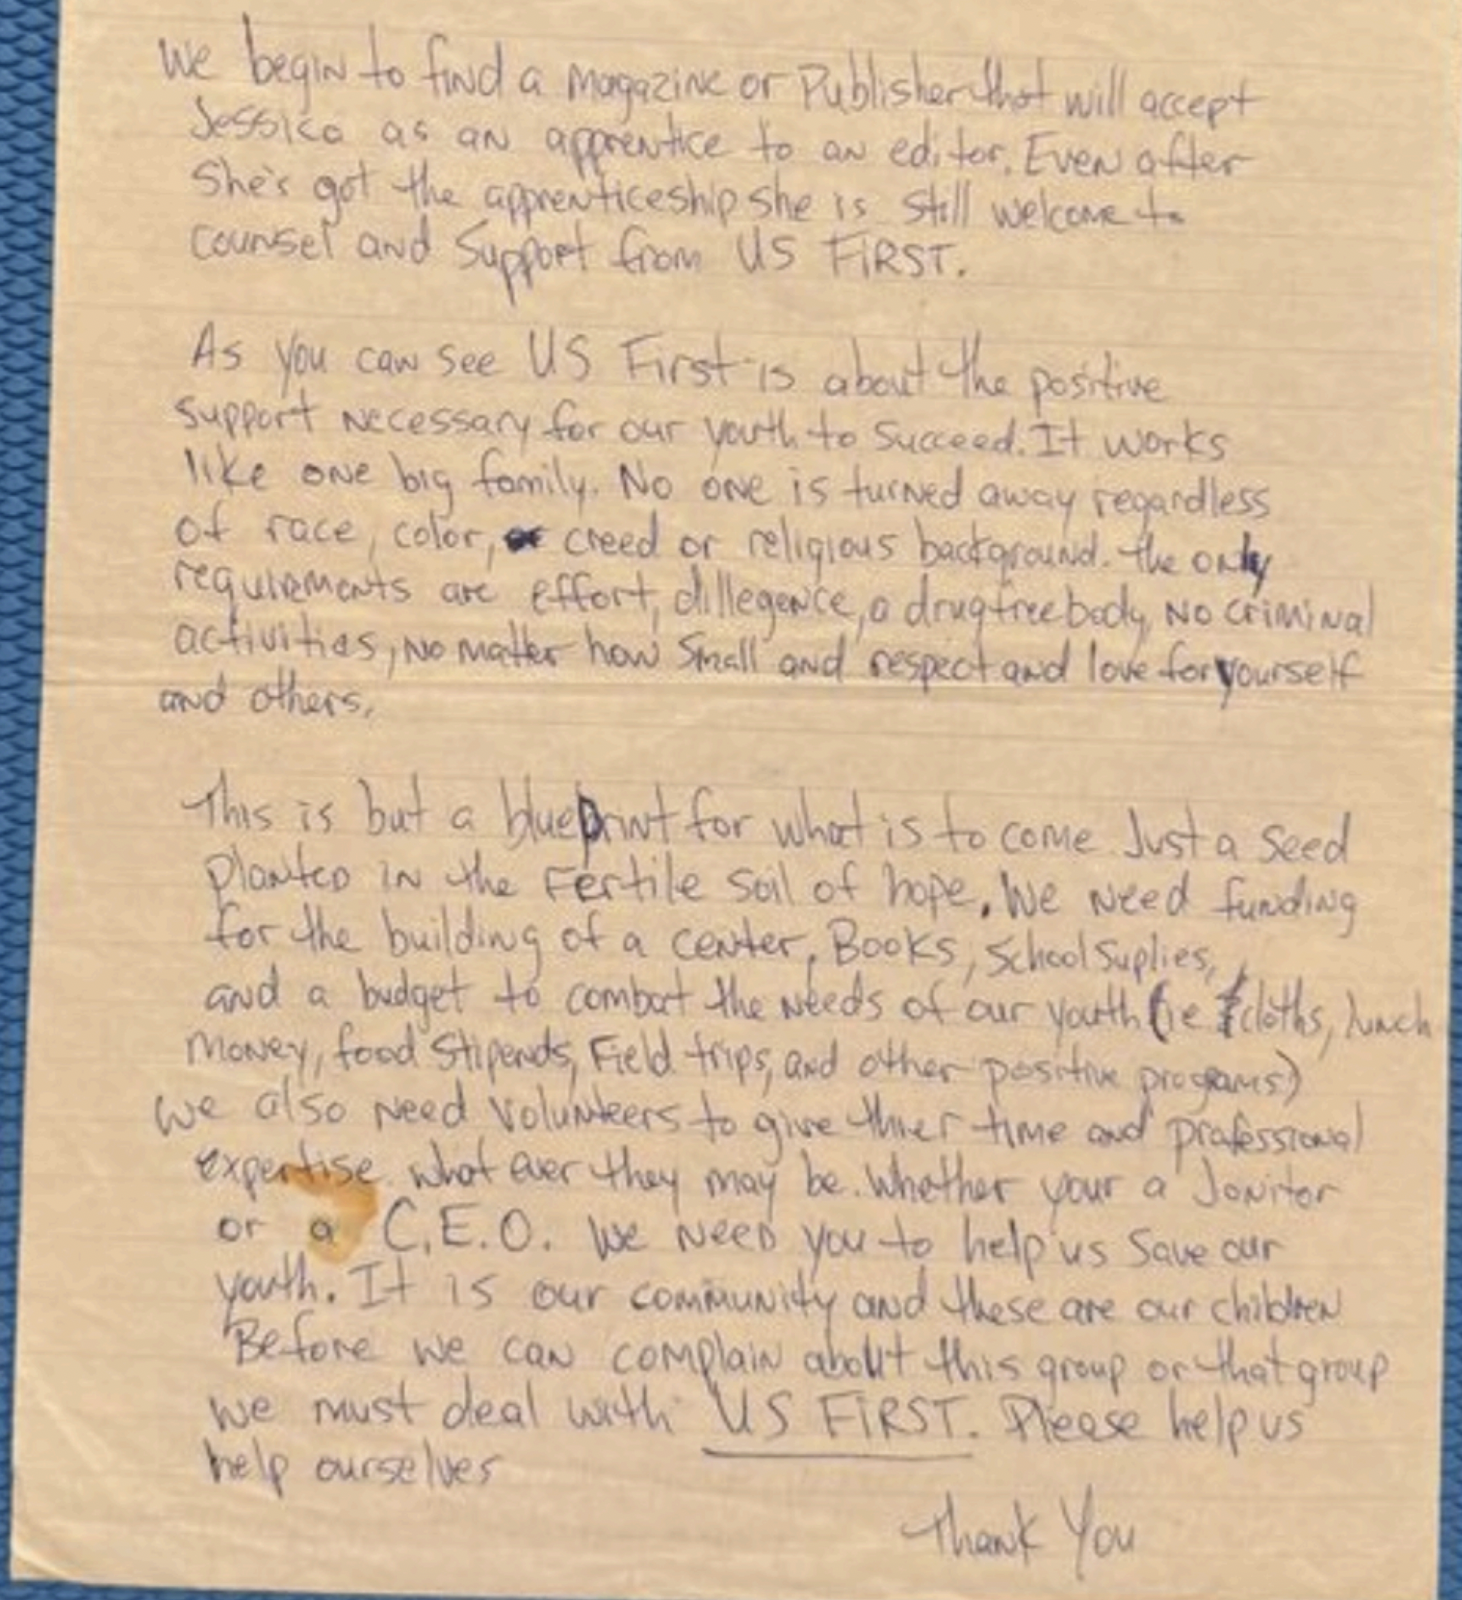 We begin to find a Magazine or Publisher that will accept
Jessica as an apprentice to an editor. Even after
She's got the apprenticeship she is still welcome to
counsel and Support from US FIRST.
As you can see US First is about the positive
support necessary for our youth to succeed. It works
like one big family. No one is turned away regardless
of race, color, or creed or religious background. the only
requirements are effort, dillegence, a drug free body, No criminal
activities, no matter how Small and respect and love for yourself
and others.
This is but a blueprint for what is to come Just a seed
planted in the Fertile soil of hope. We need funding
for the building of a center, Books, School Suplies,
and a budget to combat the needs of our youth (ie cloths, lunch
money, food Stipends, Field trips, and other positive programs)
We also need volunteers to give thier time and professional
expertise what ever they may be. Whether your a Janitor
or a C.E.O. We need you to help us save our
youth. It is our community and these are our children
Before we can complain about this group or that group
we must deal with US FIRST. Please help us
help ourselves
Thank You